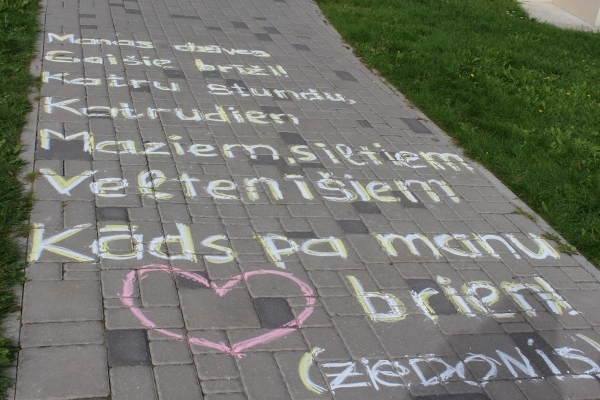 Manas dzīves
Gaišie brīži!
Katru stundu,
Katrudien
Maziem, siltiem
Veltenīšiem
Kāds pa manu
brien!
(ZIEDONIS)